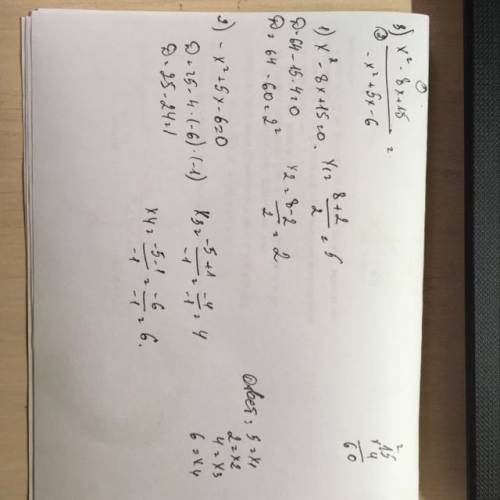 ①
3) x² - 8x + 15
② -x² + 5x - 6 =
1) x² - 8x + 15 = 0. x₁ = 8+2/2 = 5
D = 64 - 15·4 = 0
D = 64 - 60 = 2² x₂ = 8-2/2 = 2
2) -x² + 5x - 6 = 0
D = 25 - 4·(-6)·(-1) x₃ = -5+1/-1 = -4/-1 = 4
D = 25 - 24 = 1
x₄ = -5-1/-1 = -6/-1 = 6.
Ответ: 5 = x₁
2 = x₂
4 = x₃
6 = x₄
2
15
× 4
60